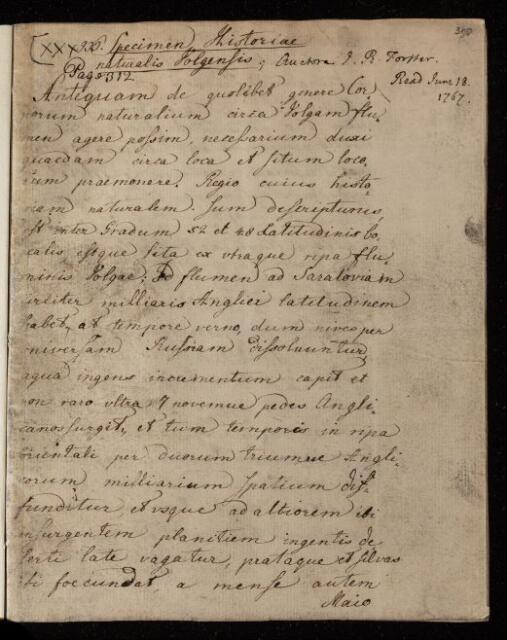 350
[XXXIX. Specimen Historiae
naturalis Volgensis; Auctore I. R. Forster.
Page 312
Read June 18.
1767.
Antiquam de quolibet genere Cor
porum naturalium circa Volgam flu-
men agere possim, necessarium duxi
quaedam circa loca et situm loco-
rum praemonere. Regio cuius histo-
riam naturalem sum descripturus,
est inter Gradum 52 et 48 Latitudinis bo-
realis estque sita ex utraque ripa flu-
minis Volgae; flumen ad Saratoviam
circiter milliaris Anglici latitudinem
habet, at tempore verno, dum nives per
universam Russiam dissolvuntur,
aqua ingens incrementum capit et
non raro ultra 7 novemve pedes Angli-
canos surgit, et tum temporis in ripa
orientali per duorum triumve Angli-
corum milliarium spatium dif-
funditur et vsque ad altiorem ibi
insurgentem planitiem ingentis de-
serti late vagatur, prataque et silvas
ibi foecundat, a mense autem
Maio